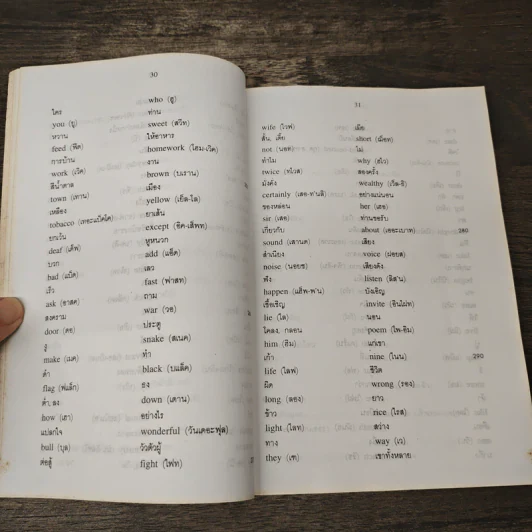 30
ใคร who (ฮู)
you (ยู) ท่าน
หวาน sweet (สวีท)
feed (ฟีด) ให้อาหาร
การบ้าน homework (โฮม-เวิค)
work (เวิค) งาน
สีน้ำตาล brown (บเราน)
town (เทาน) เมือง
เหลือง yellow (เย็ล-โล)
tobacco (เทอะแบ็คโค) ยาเส้น
ยกเว้น except (อิค-เส็พท)
deaf (เด็ฟ) หูหนวก
บวก add (แอ็ด)
bad (แบ็ด) เลว
เร็ว fast (ฟาสท)
ask (อาสค) ถาม
สงคราม war (วอ)
door (ดอ) ประตู
งู snake (สเนค)
make (เมค) ทำ
ดำ black (บแล็ค)
flag (ฟแล็ก) ธง
ต่ำ, ลง down (เดาน)
how (เฮา) อย่างไร
แปลกใจ wonderful (วันเดอะฟุล)
bull (บุล) วัวตัวผู้
ต่อสู้ fight (ไฟท)
31
wife (ไวฟ) เมีย
สั้น, เตี้ย short (ช็อท)
not (นอท) ไม่
ทำไม why (ฮไว)
twice (ทไวส) สองครั้ง
มั่งคั่ง wealthy (เว็ล-ธิ)
certainly (เสอ-ทันลิ) อย่างแน่นอน
ของหล่อน her (เฮอ)
sir (เสอ) ท่านขอรับ
เกี่ยวกับ about (เออะเบาท) 280
sound (เสานด) เสียง
สำเนียง voice (ฝอยส)
noise (นอยซ) เสียงดัง
ฟัง listen (ลิสน)
happen (แฮ็พ-พ่น) บังเอิญ
เชื้อเชิญ invite (อินไฝท)
lie (ไล) นอน
โคลง, กลอน poem (โพ-อิม)
him (ฮิม) แก่เขา
เก้า nine (ไนน) 290
life (ไลฟ) ชีวิต
ผิด wrong (รอง)
long (ลอง) ยาว
ข้าว rice (ไรส)
light (ไลท) สว่าง
ทาง way (เว)
they (เฑ) เขาทั้งหลาย